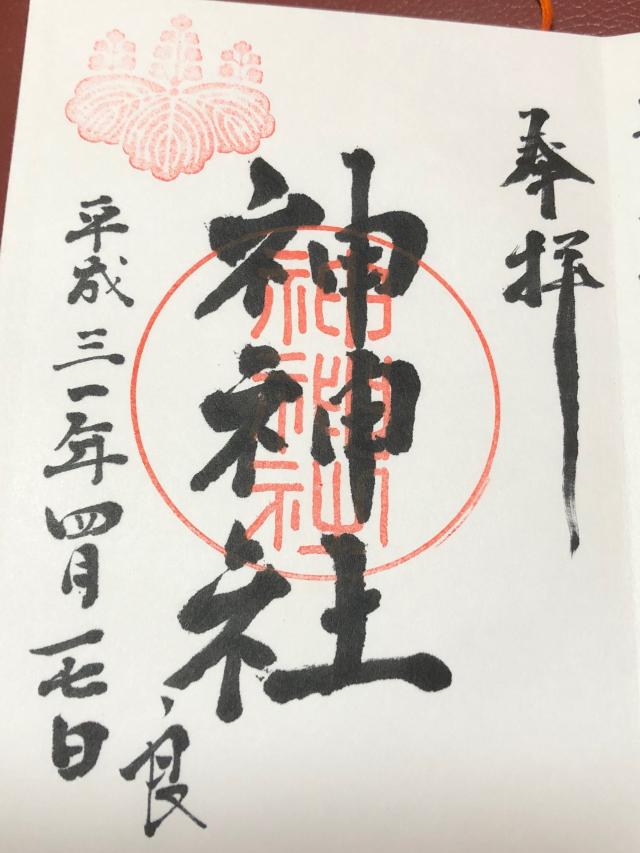 奉拝
神神社
平成三一年四月一七日
良